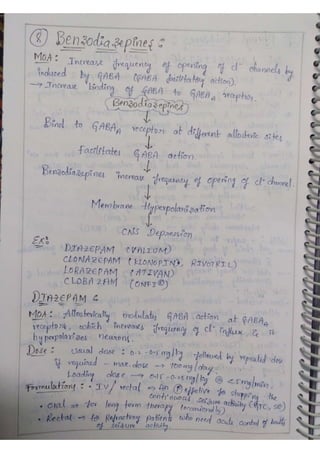 ⑧ Benzodiazepines :
MOA : Increase frequency of opening of cl⁻ channels by
induced by GABA (GABA facilitatory action).
→ Increase binding of GABA to GABA_A receptor.
Benzodiazepines
↓
Bind to GABA_A receptors at different allosteric sites
↓
Facilitates GABA action
↓
Benzodiazepines increase frequency of opening of cl⁻ channel.
↓
Membrane Hyperpolarization
↓
CNS Depression
EX:
DIAZEPAM (VALIUM)
CLONAZEPAM (KLONOPIN®, RIVOTRIL)
LORAZEPAM (ATIVAN)
CLOBAZAM (ONFI®)
DIAZEPAM :
MOA : Allosterically modulates GABA action at GABA_A
receptors, which increases frequency of cl⁻ influx & it
hyperpolarises neurons.
DOSE : usual dose : 0.2 - 0.5 mg/kg followed by repeated dose
if required - max. dose → 100 mg/day.
Loading dose → 0.15 - 0.25 mg/kg @ ≤5 mg/min.
Formulations : • IV / rectal → effective for stopping the
continuous seizure activity (GTC, SE)
• Oral → for long term therapy (occasionally)
• Rectal → to Refractory patients who need acute control of bouts
of seizure activity.